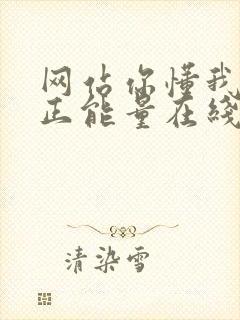 网佔你懂我
正能量在线
清染雪